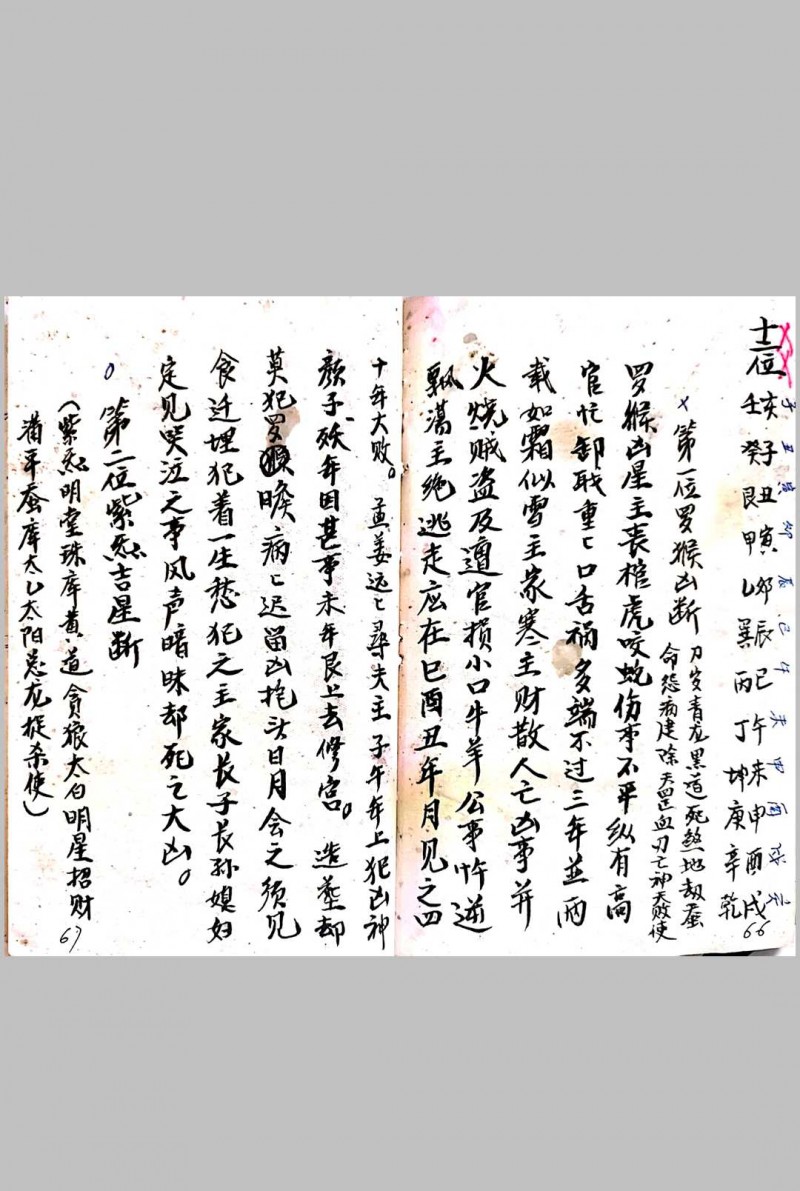 十二位
壬亥 癸子 艮丑 甲寅 乙卯 巽辰 丙巳 丁午 坤未 庚申 辛酉 乾戌
子 丑 寅 卯 辰 巳 午 未 申 酉 戌 亥
66
× 第一位罗猴凶断
刀岁青龙黑道死煞地劫蚕
命怨病建除天罡血刃亡神天败使
罗猴凶星主丧棺虎咬蛇伤事不平纵有高
官忙卸职重々口舌祸多端不过三年并两
载如霜似雪主家寒主财散人亡凶事并
火烧贼盗及遭官损小口牛羊公事忤逆
飘荡主绝逃走应在巳酉丑年月见之四
十年大败。孟姜远々寻夫主子午年上犯凶神
颜子殀年因甚事未年艮上去修宫。造葬却
莫犯罗猴瞻病々迟留凶抱头日月会之须见
食迁埋犯着一生愁犯之主家长子长孙媳妇
定见哭泣之事风声暗昧却死之大凶。
○ 第二位紫炁吉星断
（紫炁明堂珠库黄道贪狼太白明星招财
满平蚕库太乙太阳总龙捉杀使）
67